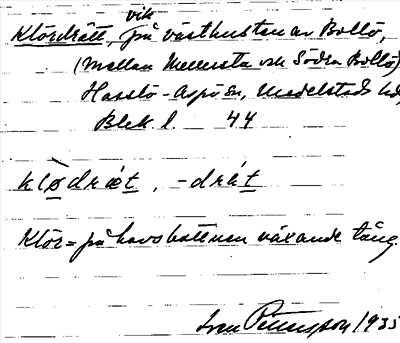 vik
Klördrätt, på västkusten av Bollö,
(mellan Mellersta och Södra Bollö)
Hasslö-Aspö sn, Medelstads hd,
Blek. l. 44
klø̀dræt, -drǽt
Klör = på havsbottnen växande tång.
Sven Pettersson 1935